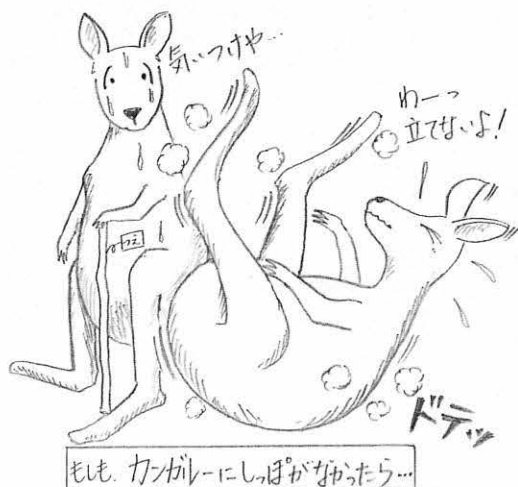 気ぃつけや…
わーっ
立てないよ!
つえ
ドテッ
もしも、カンガルーにしっぽがなかったら…